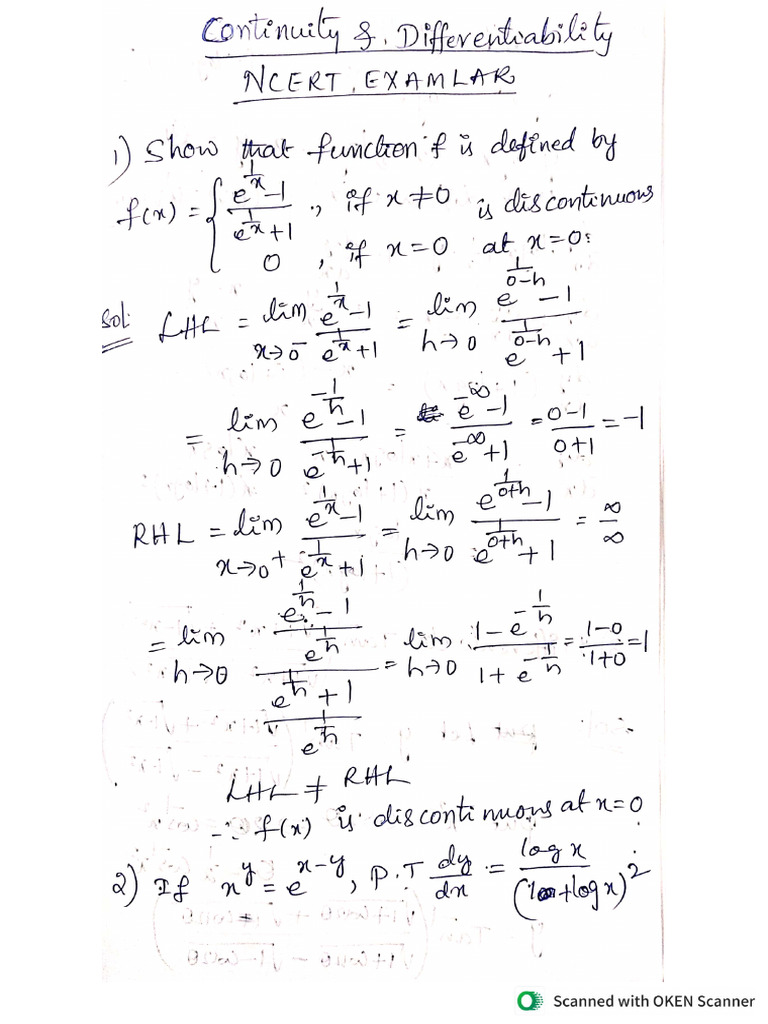 Continuity & Differentiability
NCERT EXAMLAR
1) Show that function f is defined by
f(x) = { (e^(1/x) - 1)/(e^(1/x) + 1), if x ≠ 0 is discontinuous
0, if x = 0 at x = 0.
Sol: LHL = lim x→0⁻ (e^(1/x) - 1)/(e^(1/x) + 1) = lim h→0 (e^(1/(0-h)) - 1)/(e^(1/(0-h)) + 1)
= lim h→0 (e^(-1/h) - 1)/(e^(-1/h) + 1) = (e^(-∞) - 1)/(e^(-∞) + 1) = (0-1)/(0+1) = -1
RHL = lim x→0⁺ (e^(1/x) - 1)/(e^(1/x) + 1) = lim h→0 (e^(1/(0+h)) - 1)/(e^(1/(0+h)) + 1) = ∞/∞
= lim h→0 ((e^(1/h) - 1)/e^(1/h))/((e^(1/h) + 1)/e^(1/h)) = lim h→0 (1 - e^(-1/h))/(1 + e^(-1/h)) = (1-0)/(1+0) = 1
LHL ≠ RHL
∴ f(x) is discontinuous at x=0
2) If x^y = e^(x-y), P.T dy/dx = log x/(1+log x)^2
Scanned with OKEN Scanner